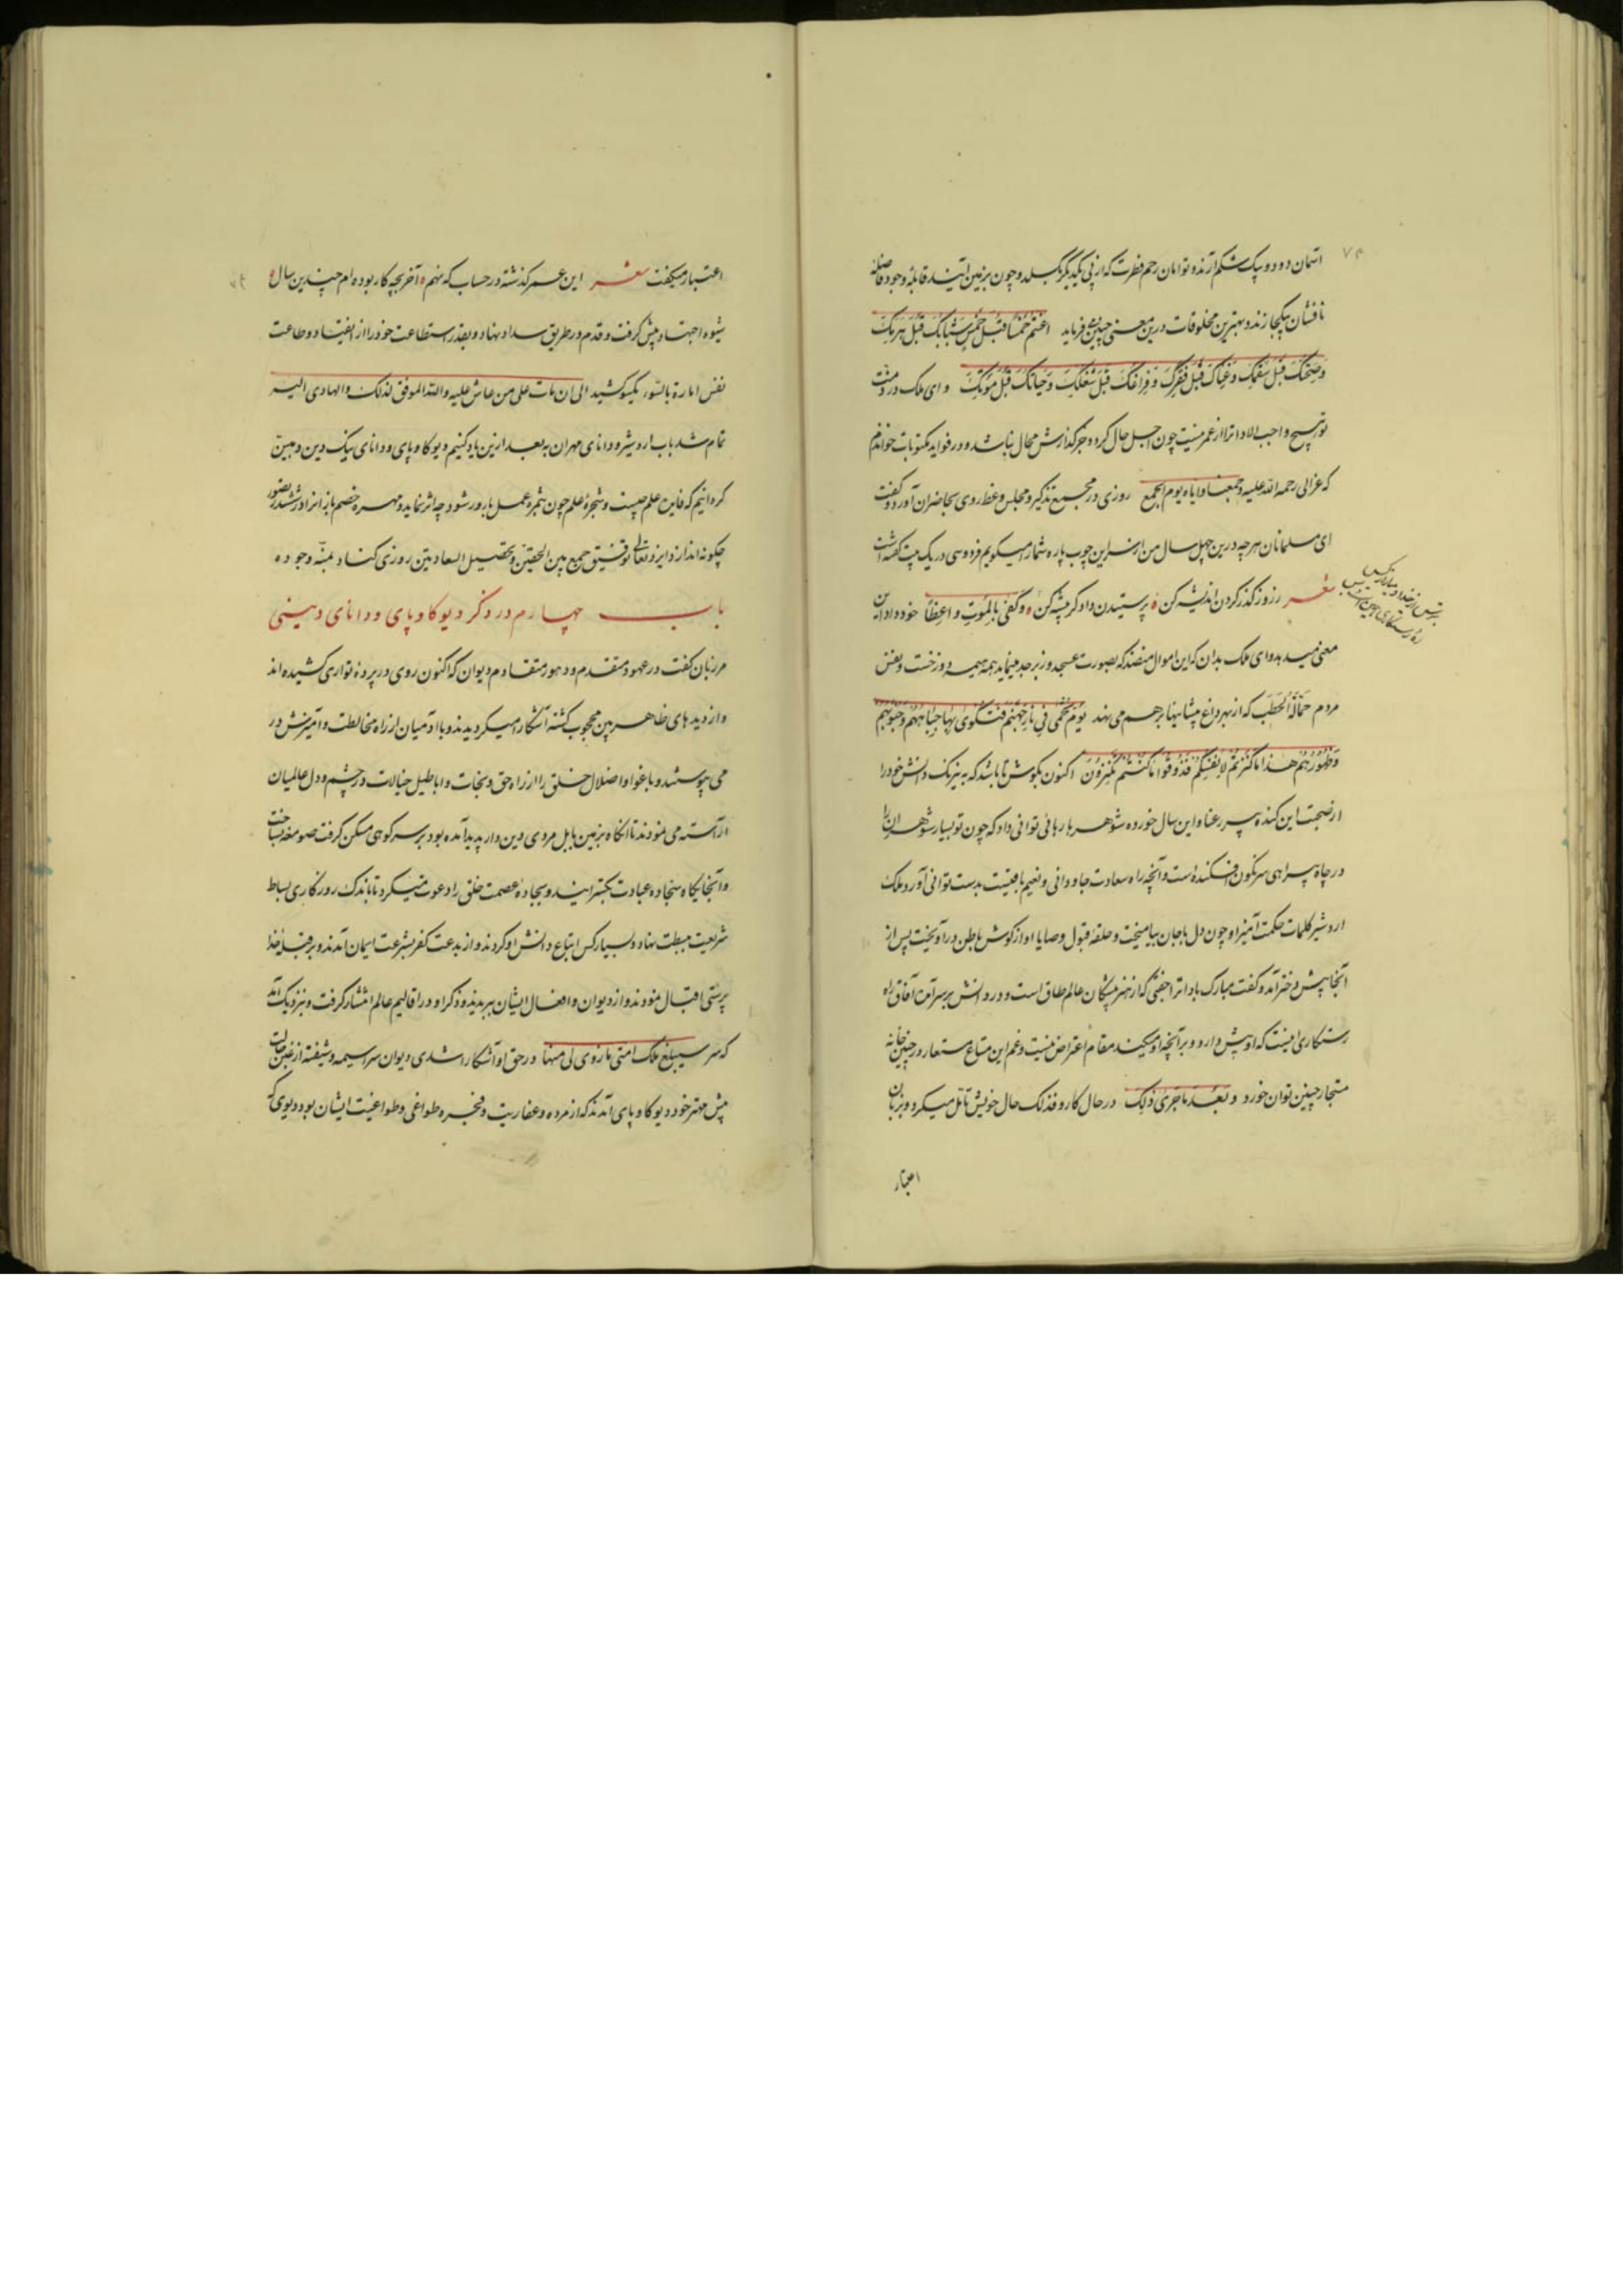 آسمان دو دو بیک شکم آرند و توامان رحم فطرت که از پی یکدیگر بگسلد و چون بزمین آیند قابلهٔ وجود فاصله
نافشان بیکجا زند و بهترین مخلوقات درین معنی چنین میفرماید اغتنم خمسا قبل خمس شبابک قبل هرمک
و صحتک قبل سقمک و غناک قبل فقرک و فراغک قبل شغلک و حیاتک قبل موتک و ای ملک در ذمت
تو هیچ واجب الادا تر از عمر نیست چون اجل حال گردد جز گذارش محال نباشد و در فواید مکتوبات خواندم
که غزالی رحمه الله علیه و جمعنا و ایاه یوم الجمع روزی در مجمع تذکیر و مجلس وعظ روی بحاضران آورد و گفت
ای مسلمانان هر چه درین چهل سال من از سر این چوب پاره شمارا میگویم فردوسی در یک بیت گفته است
شعر ز روز گذر کردن اندیشه کن ٥ پرستیدن دادگر پیشه کن ٥ و کفی بالموت واعظا خود داد این
بترس از خدا و میازار کس
ره رستگاری همین است و بس
معنی میدهد و ای ملک بدان که این اموال منضد که بصورت عسجد و زبرجد مینماید همه هیمه دوزخست و نفس
مردم حمالة الحطب که از بهر داغ پیشانیها برهم می نهد یوم یحمی فی نار جهنم فتکوی بها جباههم و جنوبهم
و ظهورهم هذا ما کنزتم لانفسکم فذوقوا ما کنتم تکنزون اکنون بکوش تا باشد که به نیرنگ دانش خود را
از صحبت این گنده پیر رعنا و این سال خورده شوهر با رهائی توانی داد که چون تو بسیار شوهران را
در چاه سراهی سرنگون افکنده است و آنچه راه سعادت جاودانی و نعیم باقیست بدست توانی آورد ملک
اردشیر کلمات حکمت آمیز او چون دل با جان بیامیخت و حلقه قبول وصایا او از گوش باطن در آویخت پس از
آنجا پیش دختر آمد و گفت مبارک باد ترا جفتی که از هنر پیشگان عالم طاق است و در دانش بر سر آمده آفاق راه
رستگاری اینست که او پیش دارد و بر آنچه او میکند مقام اعتراض نیست و غم این متاع مستعار در چنین خانه
مستجار چنین توان خورد و بعد ما جری ذلک در حال کار و فذلک حال خویش تامل میکرد و بزبان
اعتبار
اعتبار میگفت شعر این عمر گذشته در حساب که نهم ٥ آخر بچه کار بوده ام چندین سال ٥
شیوه اجتهاد پیش گرفت و قدم در طریق سداد بنهاد و بقدر استطاعت خود را از انقیاد و طاعت
نفس امارة بالسوء یکسو کشید الی ان مات علی من عاش علیه والله الموفق لذلک والهادی الیه
تمام شد باب اردشیر و دانای مهران به بعد ازین یاد کنیم دیو گاو پای و دانای نیک دین و مبین
گردانیم که فایده علم چیست و شجرهٔ علم چون بثمره عمل بارور شود چه اثر نماید و مهره خصم باز از نرد در ششدر تصور
چگونه اندازد ایزد تعالی توفیق جمع بین الحقین و تحصیل السعادتین روزی کناد بمنه و جوده
باب چهارم در ذکر دیو گاو پای و دانای دینی
مرزبان گفت در عهود متقدم و دهور متقادم دیوان که اکنون روی در پردهٔ تواری کشیده اند
و از دیدهای ظاهر بین محجوب گشته آشکارا میگردیدند و با آدمیان از راه مخالطت و آمیزش در
می پیوستند و باغوا و اضلال خلق را از راه حق و نجات و اباطیل خیالات در چشم و دل عالمیان
آراسته می نمودند تا آنگاه بزمین بابل مردی دین دار پدید آمده بود بر سر کوهی مسکن گرفت صومعه ساخت
و آنجایگاه سجاده عبادت بگسترانید و بجادهٔ عصمت خلق را دعوت میکرد تا باندک روزگاری بساط
شریعت مبسطت نهاد و بسیار کس اتباع دانش او کردند و از بدعت کفر بشرعت ایمان آمدند و بر قبلهٔ خدا
پرستی اقبال نمودند و از دیوان و افعال ایشان ببریدند و ذکر او در اقالیم عالم انتشار گرفت و نزدیک آمد
که سر سیبلغ ملک امتی ما زوی لی منها در حق او آشکارا شدی دیوان سراسیمه و شیفته از غبن حالت
پیش مهتر خود دیو گاو پای آمدند که از مرده و عفاریت و فجره طواغی و طواغیت ایشان بود دیوی که